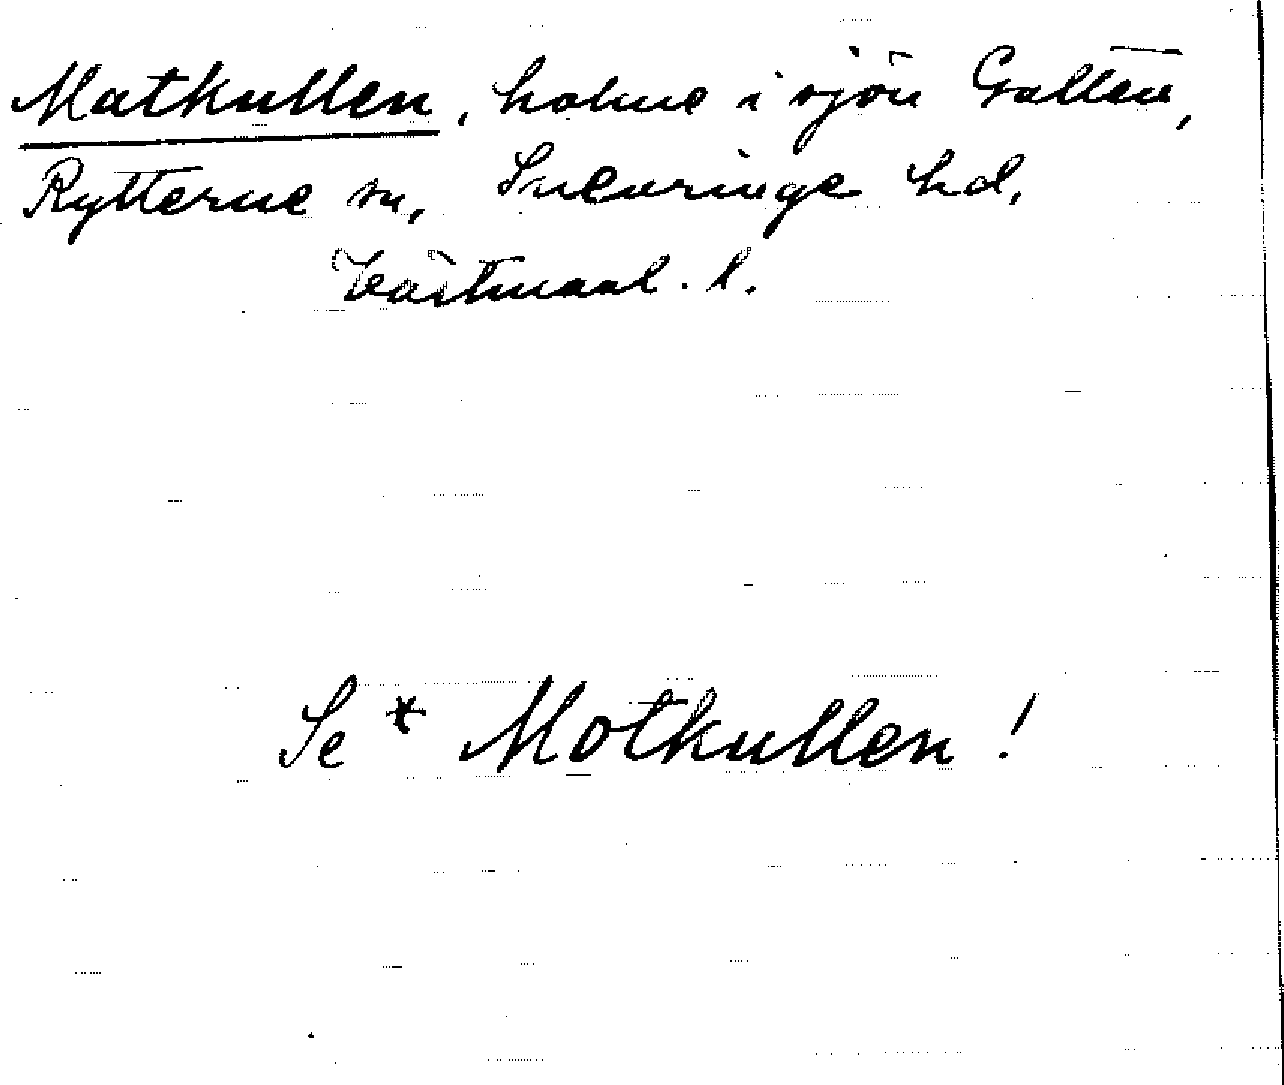 Matkullen, holme i sjön Galten,
Rytterne sn, Snevringe hd,
Västmanl. l.
Se * Motkullen!